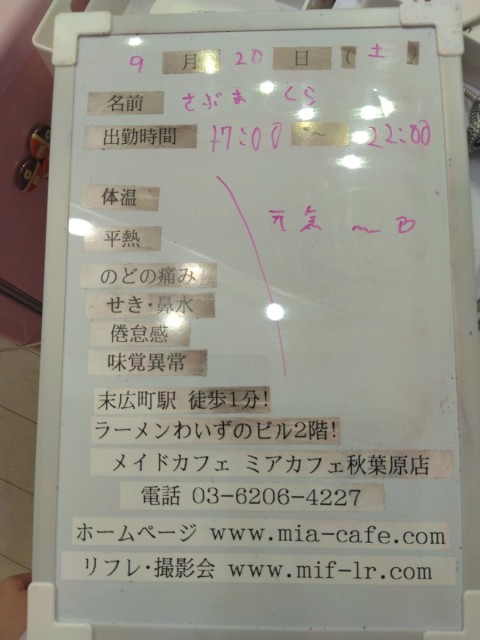 9 月 20 日 (土)
名前 さぶま くら
出勤時間 17:00 ~ 22:00
体温
元気
平熱
のどの痛み
せき・鼻水
倦怠感
味覚異常
末広町駅 徒歩1分!
ラーメンわいずのビル2階!
メイドカフェ ミアカフェ秋葉原店
電話 03-6206-4227
ホームページ www.mia-cafe.com
リフレ・撮影会 www.mif-lr.com